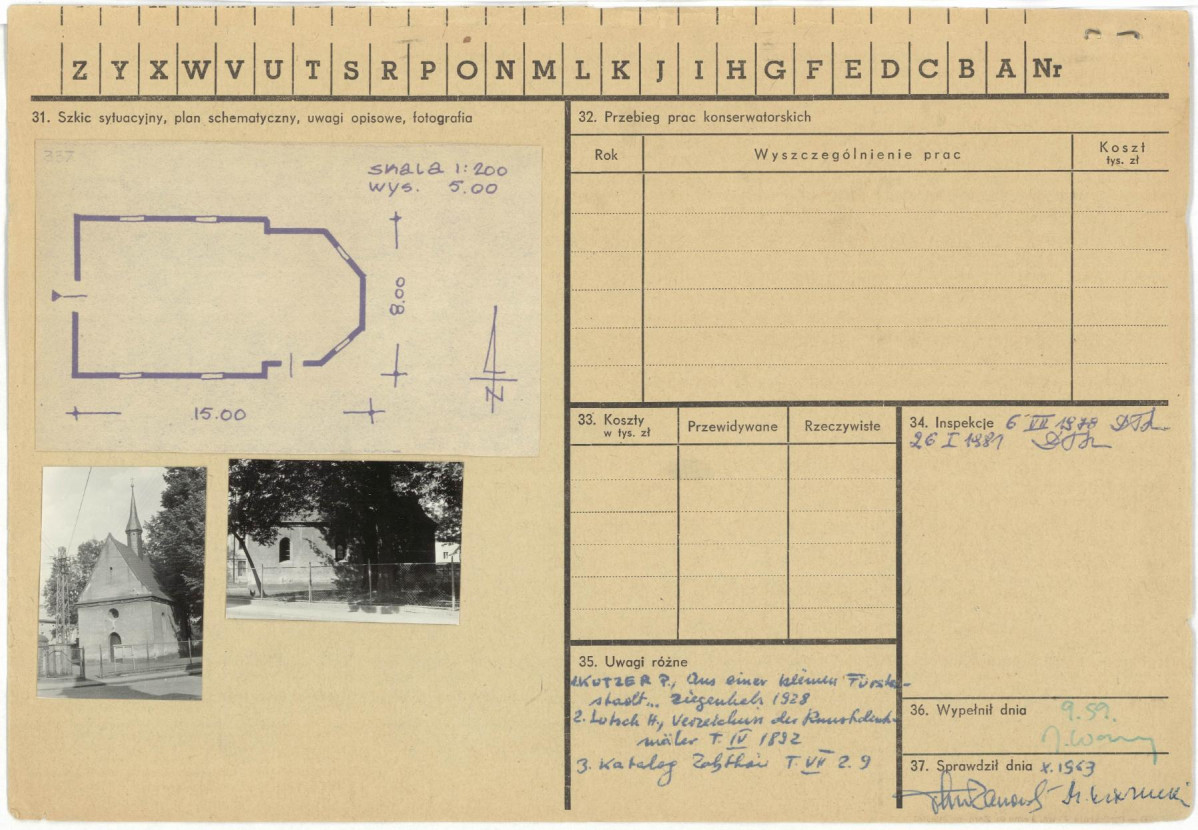 Z Y X W V U T S R P O N M L K J I H G F E D C B A Nr
31. Szkic sytuacyjny, plan schematyczny, uwagi opisowe, fotografia
337
skala 1:200
wys. 5.00
8.00
N
15.00
32. Przebieg prac konserwatorskich
Rok
Wyszczególnienie prac
Koszt
tys. zł
33. Koszty
w tys. zł
Przewidywane
Rzeczywiste
34. Inspekcje 6 VII 1978
26 I 1981
35. Uwagi różne
1. KUTZER P., Aus einer kleinen Fürsten-
stadt... Ziegenhals 1928
2. Lutsch H., Verzeichnis der Kunstdenk-
mäler T. IV 1892
3. Katalog Zabytków T. VII z. 9
36. Wypełnił dnia 9.59.
37. Sprawdził dnia X.1963